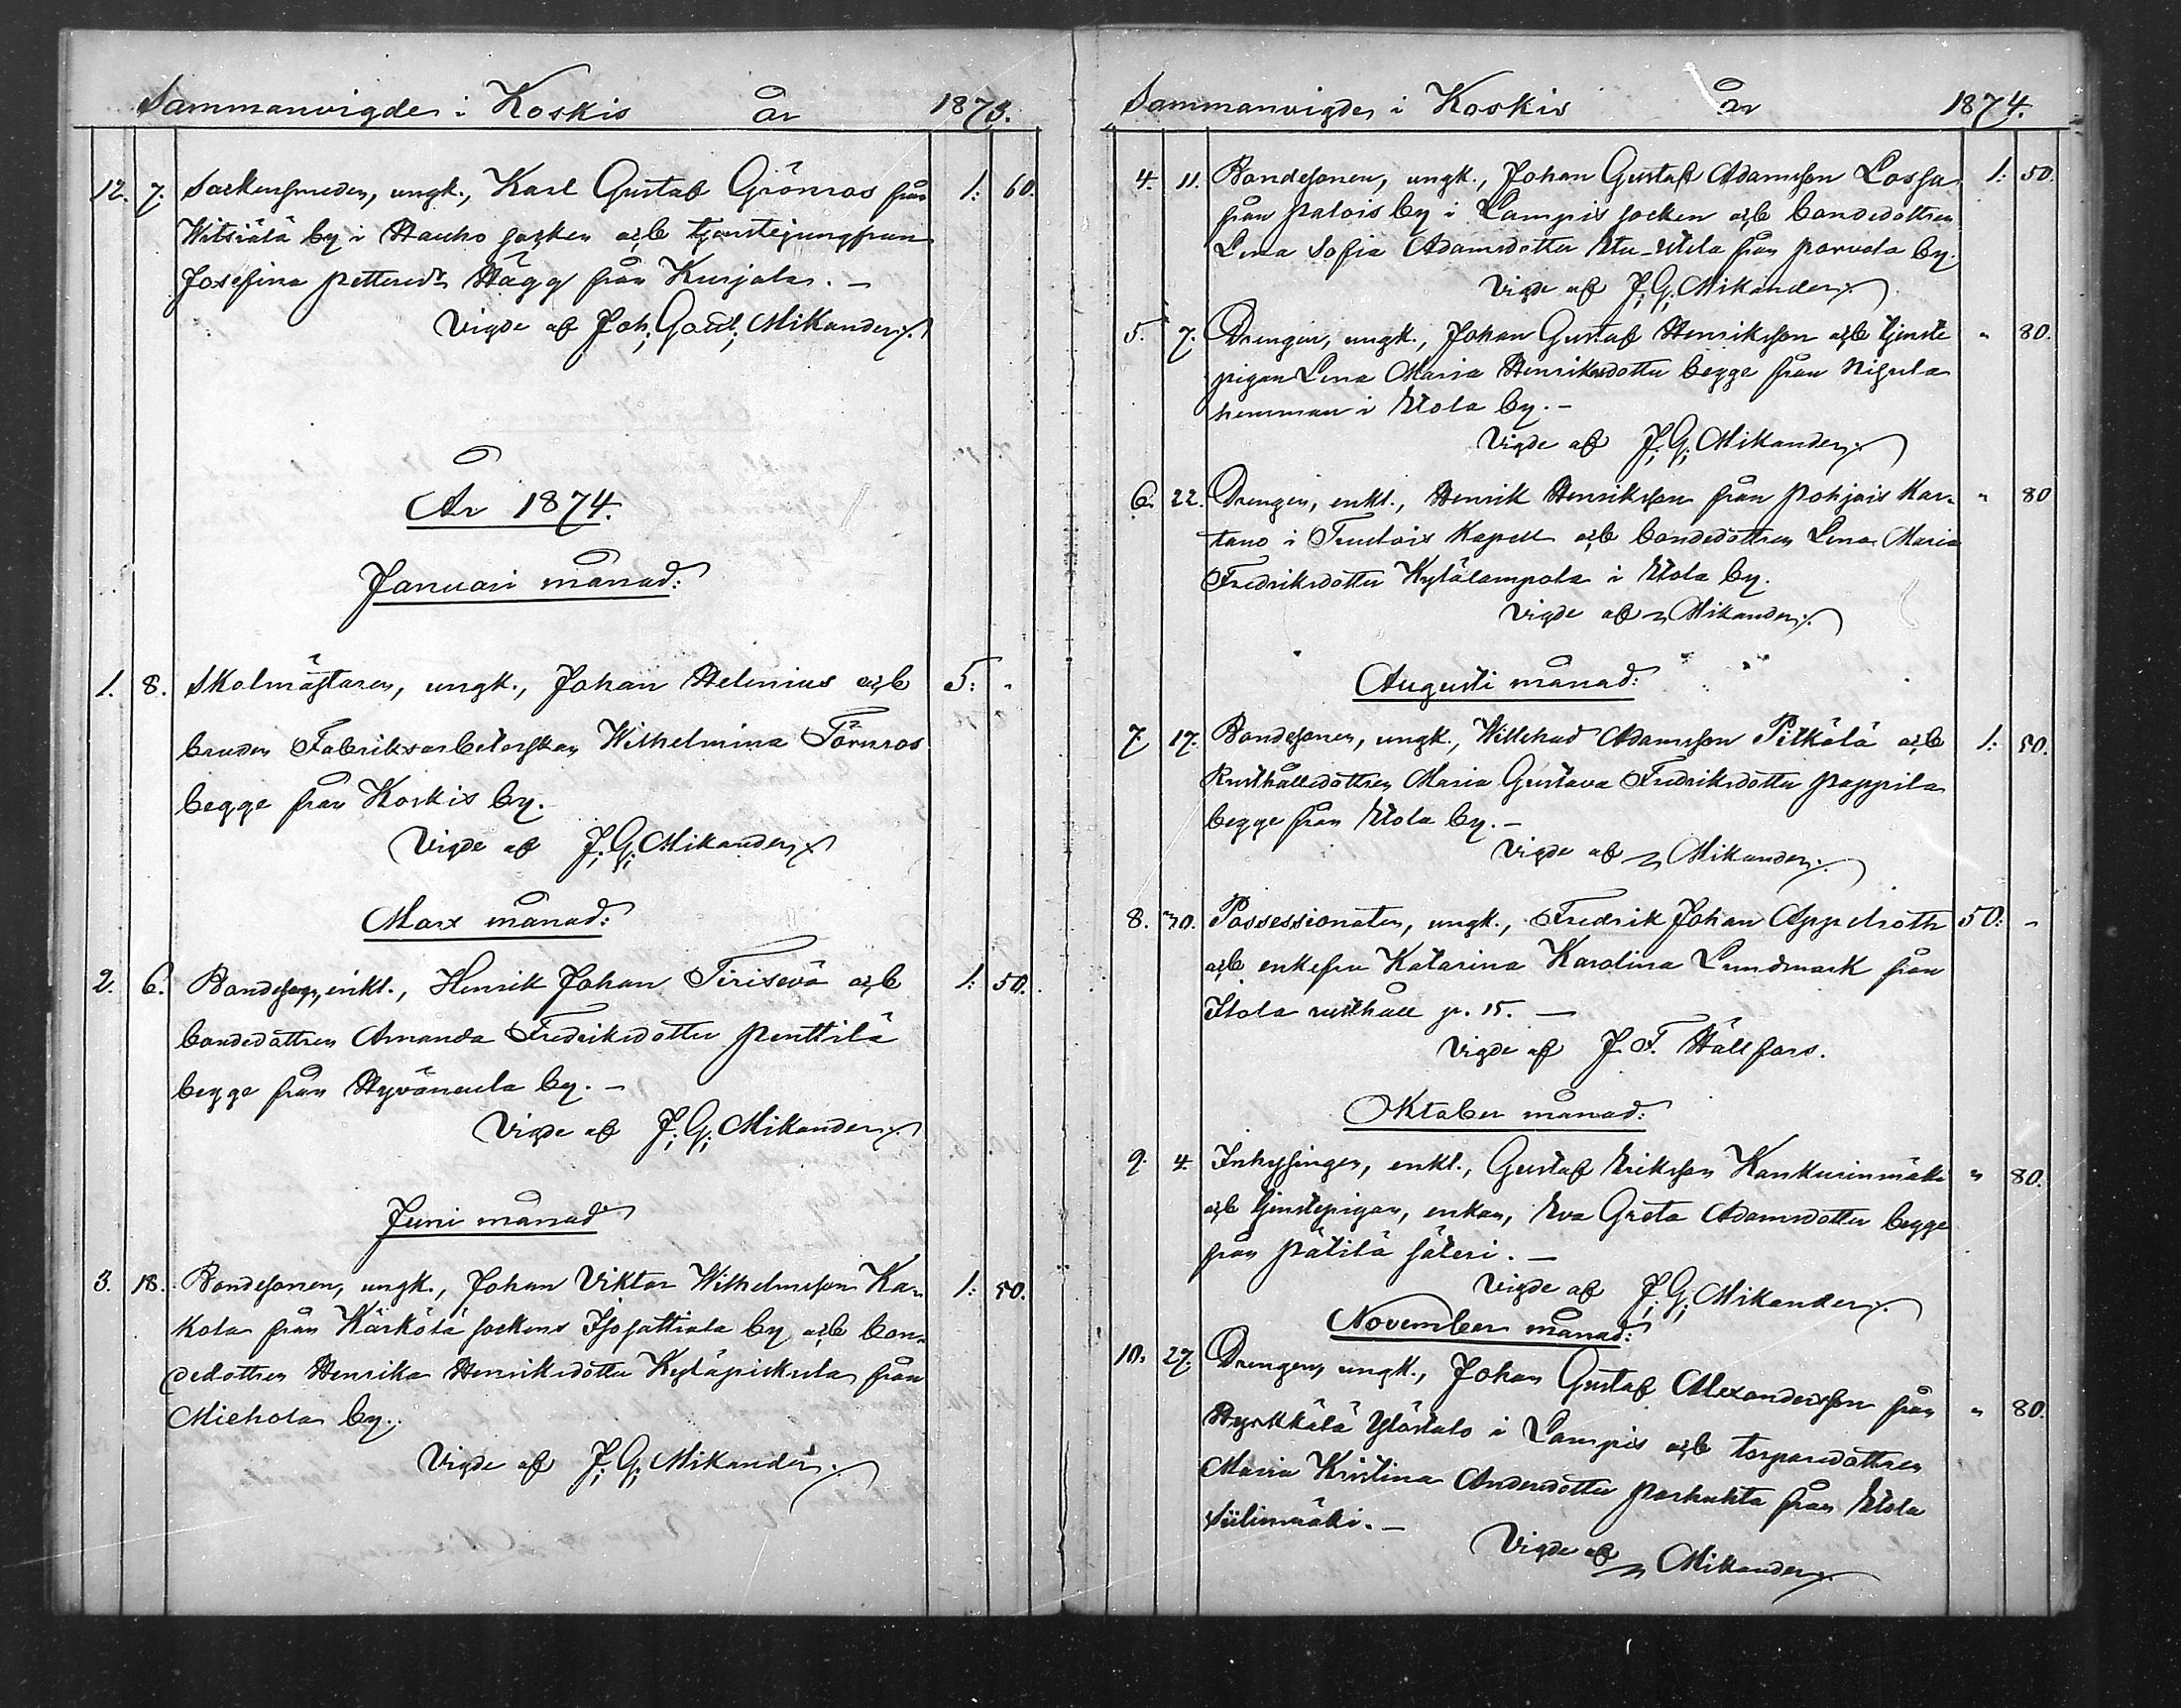 Sammanvigde i Koskis år 1873.
12. 7. Sockensmeden, ungk., Karl Gustaf Grönroos från 1: 60.
Witsiälä by i Hauho socken och tjenstejungfrun
Josefina Pettersdr Hägg från Kurjala. –
Vigde af Joh; Gast; Mikander
År 1874.
Januari månad:
1. 8. Skolmästaren, ungk., Johan Helenius och 5: "
bruden Fabriksarbeterskan Wilhelmina Törnroos
begge från Koskis by.
Vigde af J; G; Mikander
Mars månad:
2. 6. Bondeson, enkl., Henrik Johan Tirisevä och 1: 50.
bondedottren Amanda Fredriksdotter Penttilä
begge från Hyväneula by. –
Vigde af J; G; Mikander
Juni månad
3. 18. Bondesonen, ungk., Johan Viktor Wilhelmsson Kar- 1: 50.
kola från Kärkölä sockens Isosattiala by och bon-
dedottren Henrika Henriksdotter Kyläpiekula från
Miehola by.
Vigde af J; G; Mikander
Sammanvigde i Koskis år 1874.
4. 11. Bondesonen, ungk., Johan Gustaf Adamsson Lossa 1: 50.
från Palois by i Lampis socken och bondedottren
Lena Sofia Adamsdotter Utu-Utela från Porvola by.
Vigde af J; G; Mikander
5. 7. Drengen, ungk., Johan Gustaf Henriksson och tjenste " 80.
pigan Lena Maria Henriksdotter begge från Nigula
hemman i Etola by. –
Vigde af J; G; Mikander
6. 22. Drengen, enkl., Henrik Henriksson från Pohjois Kar- " 80
tano i Tuulois Kapell och bondedottren Lena Maria
Fredriksdotter Kylälampola i Etola by.
Vigde af Mikander
Augusti månad:
7 17. Bondesonen, ungk., Willehad Adamsson Pitkälä och 1: 50.
Rusthålledottren Maria Gustava Fredriksdotter Pappila
begge från Etola by. –
Vigde af Mikander
8. 30. Possessionaten, ungk., Fredrik Johan Appelroth 50: –
och enkefru Katarina Karolina Lundmark från
Etola rusthåll p. 15. —
Vigde af J. F. Hällfors.
Oktober månad:
9. 4. Inhysingen, enkl., Gustaf Eriksson Kankurinmäki " 80.
och tjenstepigan, enkan, Eva Greta Adamsdotter begge
från Pätilä säteri. —
Vigde af J; G; Mikander
November månad:
10. 27. Drengen, ungk., Johan Gustaf Alexandersson från " 80.
Hyrkkälä Ylöstalo i Lampis och torparedottren
Maria Kristina Andersdotter Parhahta från Etola
Siilinmäki. –
Vigde af Mikander